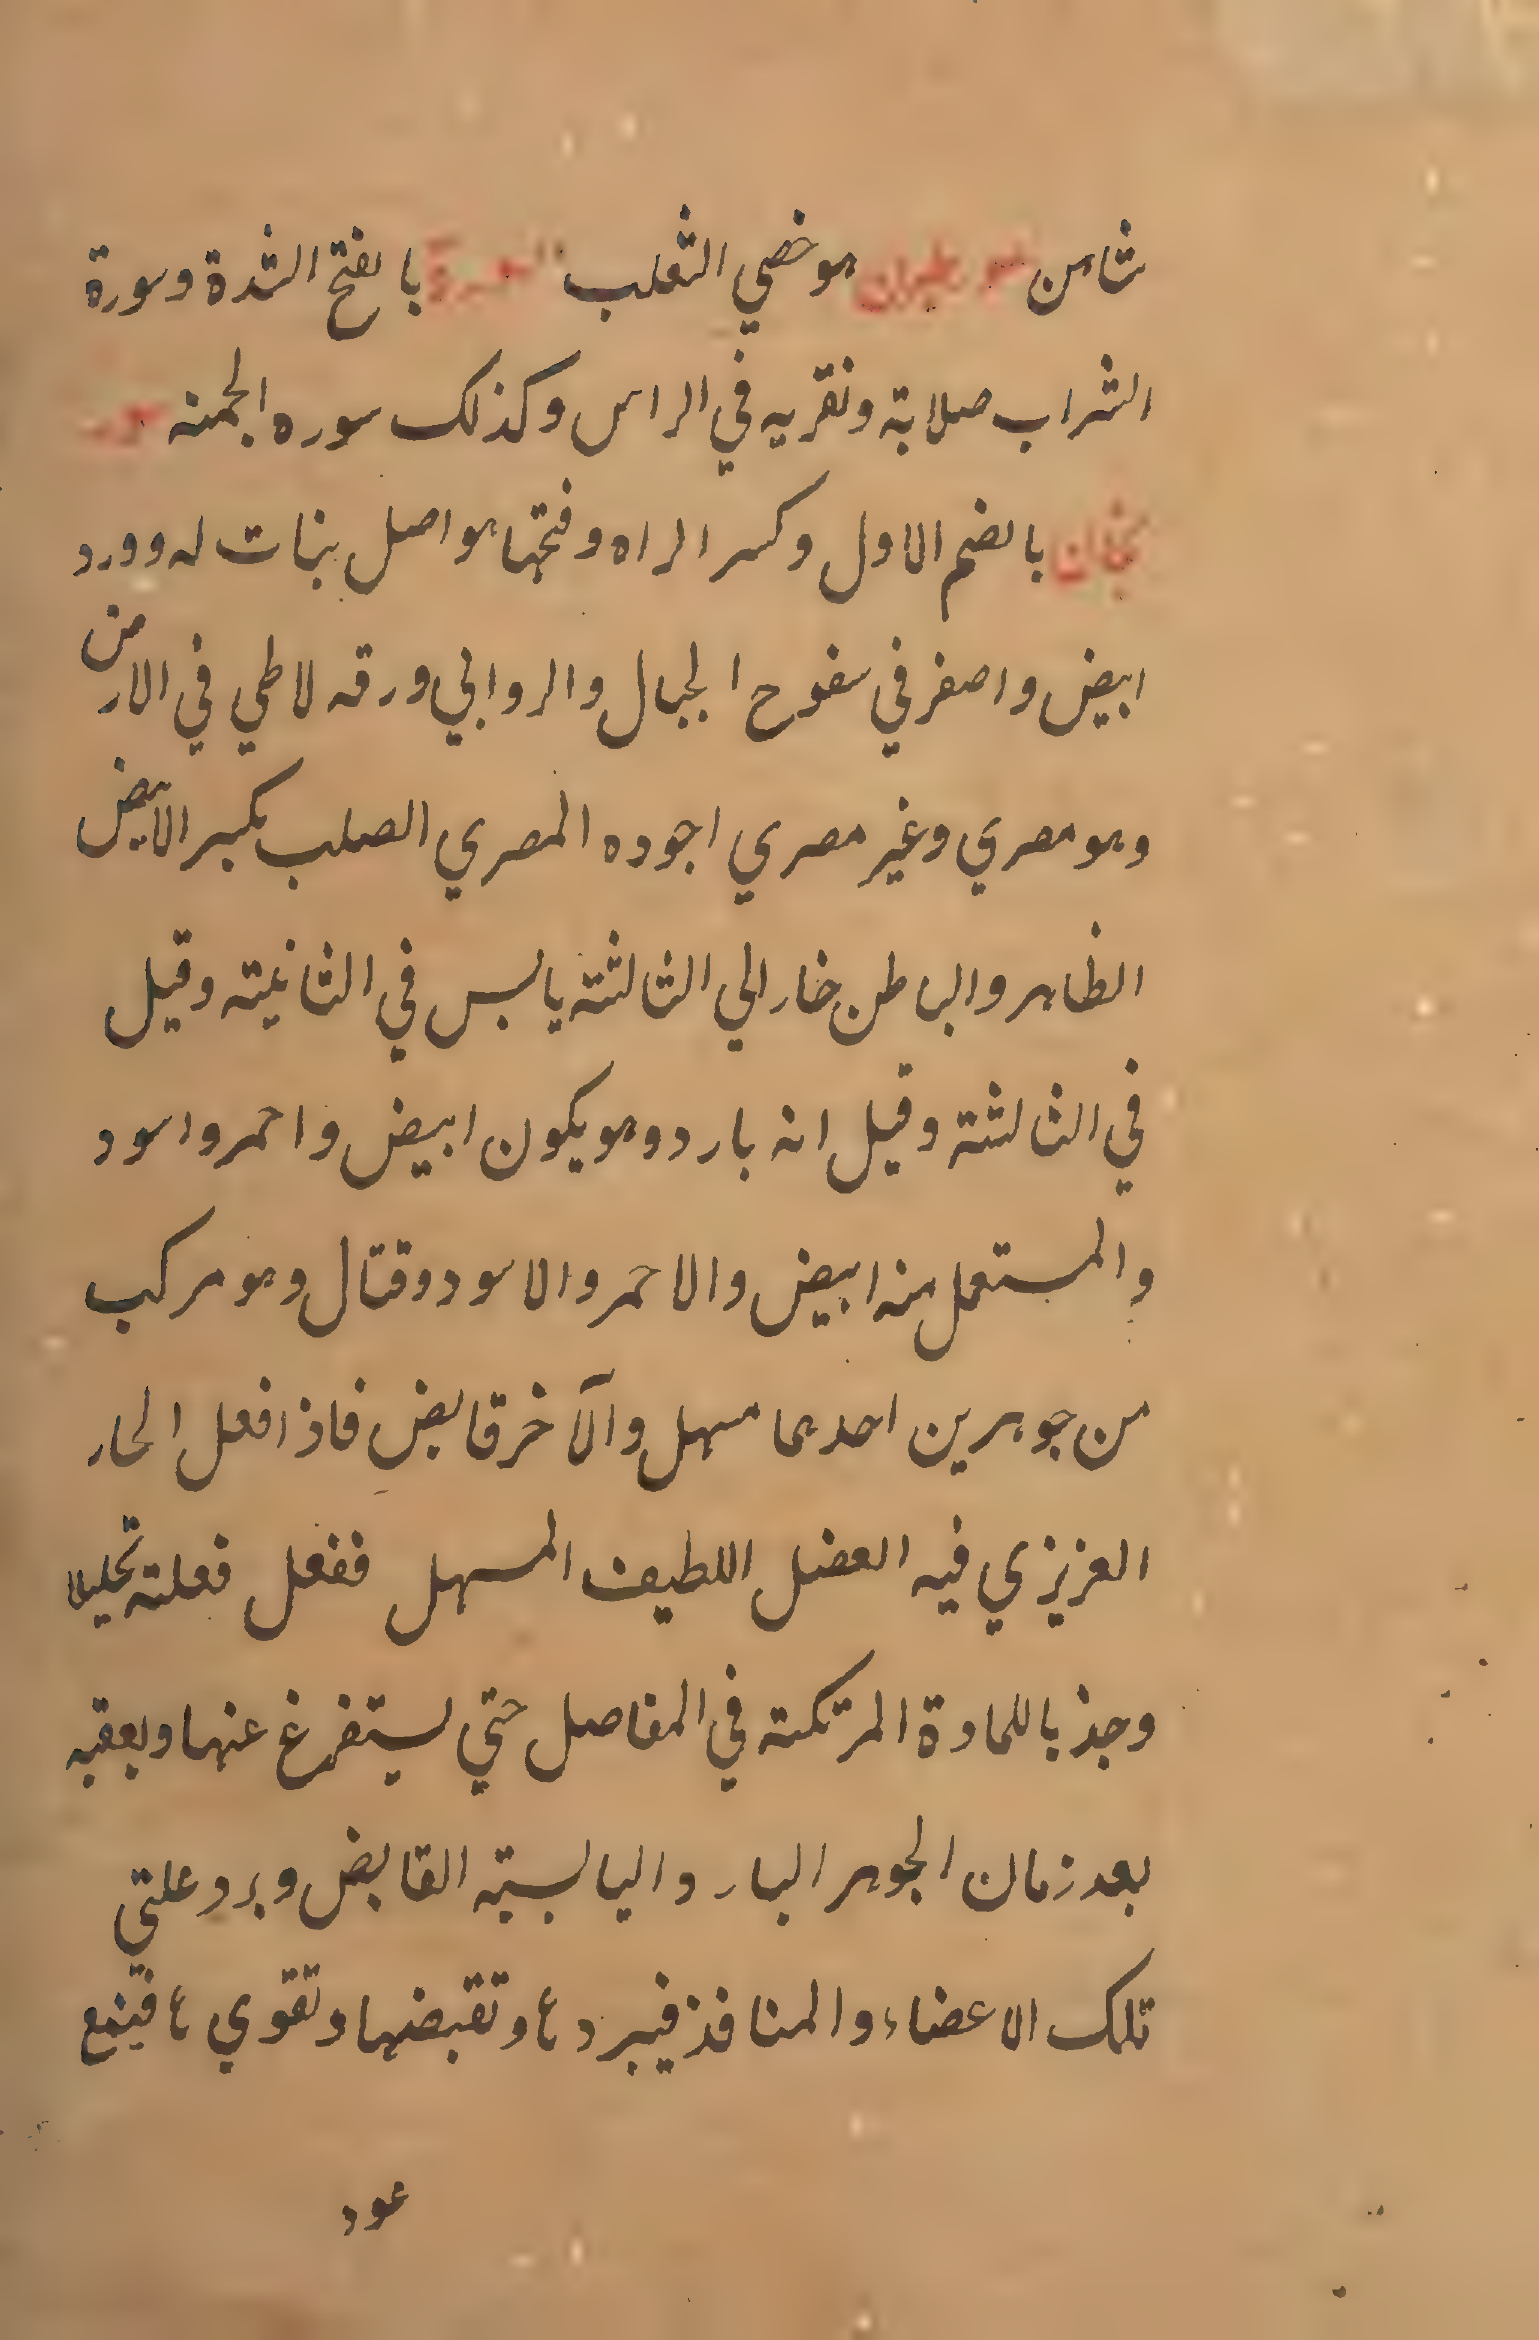 ثامن هو خصي الثعلب السورة بالفتح الشدة وسورة
الشراب صلابة ونقريه في الراس وكذلك سوره الجمنه سور
نجان بالضم الاول وكسر الراه وفتحها هو اصل بنات له وورد
ابيض واصفر في سفوح الجبال والروابي ورقه لاطي في الارض
وهو مصري وغير مصري اجوده المصري الصلب بكسر الابيض
الظاهر والباطن خار الي الثالثة يابس في الثانية وقيل
في الثالثة وقيل انه بارد وهو يكون ابيض واحمر واسود
والمستعمل منه ابيض والاحمر والاسود وقتال وهو مركب
من جوهرين احدهما مسهل والآخر قابض فاذا فعل الحار
العزيزي فيه العضل اللطيف المسهل ففعل فعلته تحليلا
وجذبا للمادة المرتكنه في المفاصل حتي يستفرغ عنها ويعقبه
بعد زمان الجوهر البار د اليابسته القابض ويرد علتي
تلك الاعضاء والمنافذ فيبرد ها وتقبضها وتقوي ها فيمنع
عود